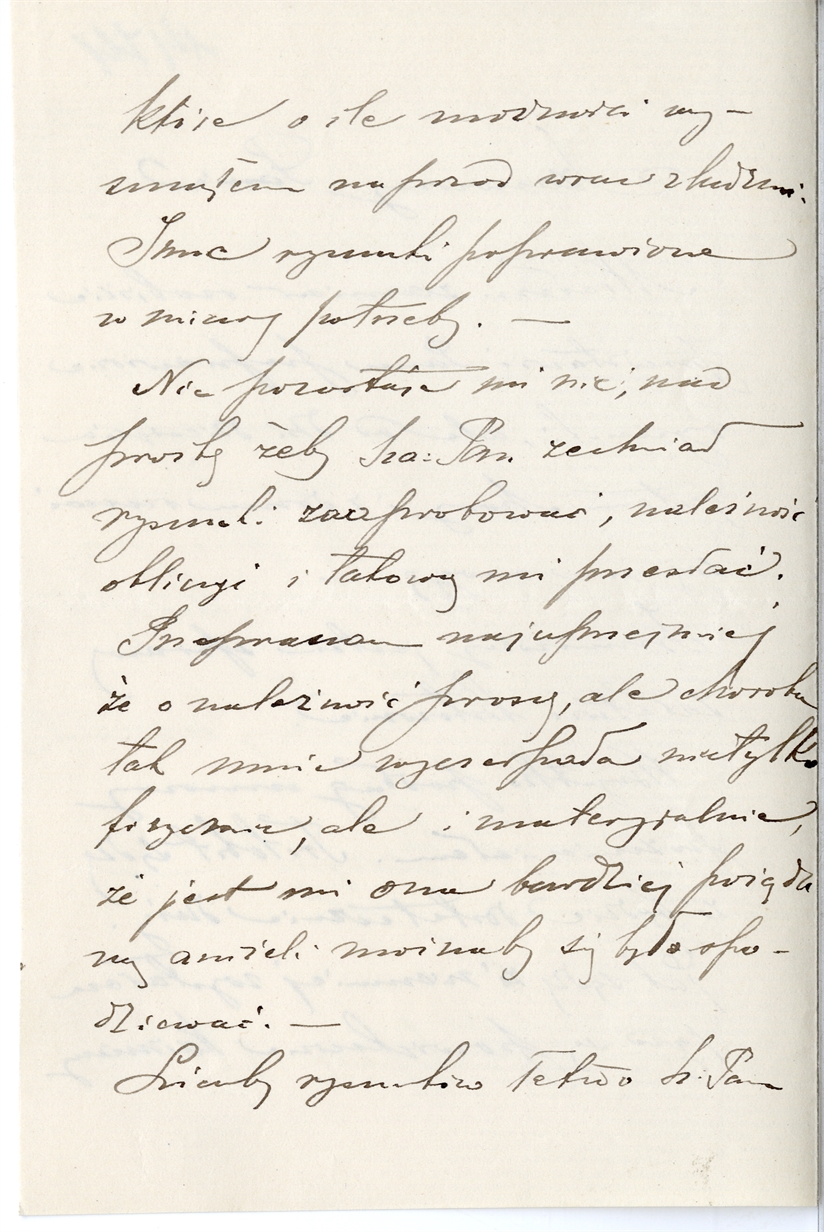 które o ile możności wy-
snułem naprzód wraz z ludźmi.
Inne rysunki poprawione
w miarę potrzeby. —
Nie pozostaje mi nic, nad
prośbę żeby Sza: Pan zechciał
rysunki zaaprobować, należność
obliczyć i takową mi przesłać.
Przepraszam najuprzejmiej
że o należność proszę, ale choroba
tak mnie wyczerpała nietylko
fizycznie, ale i materyalnie,
że jest mi ona bardziej pożąda
ną aniżeli możnaby się było spo-
dziewać. —
Liczby rysunków łatwo Sz. Pan